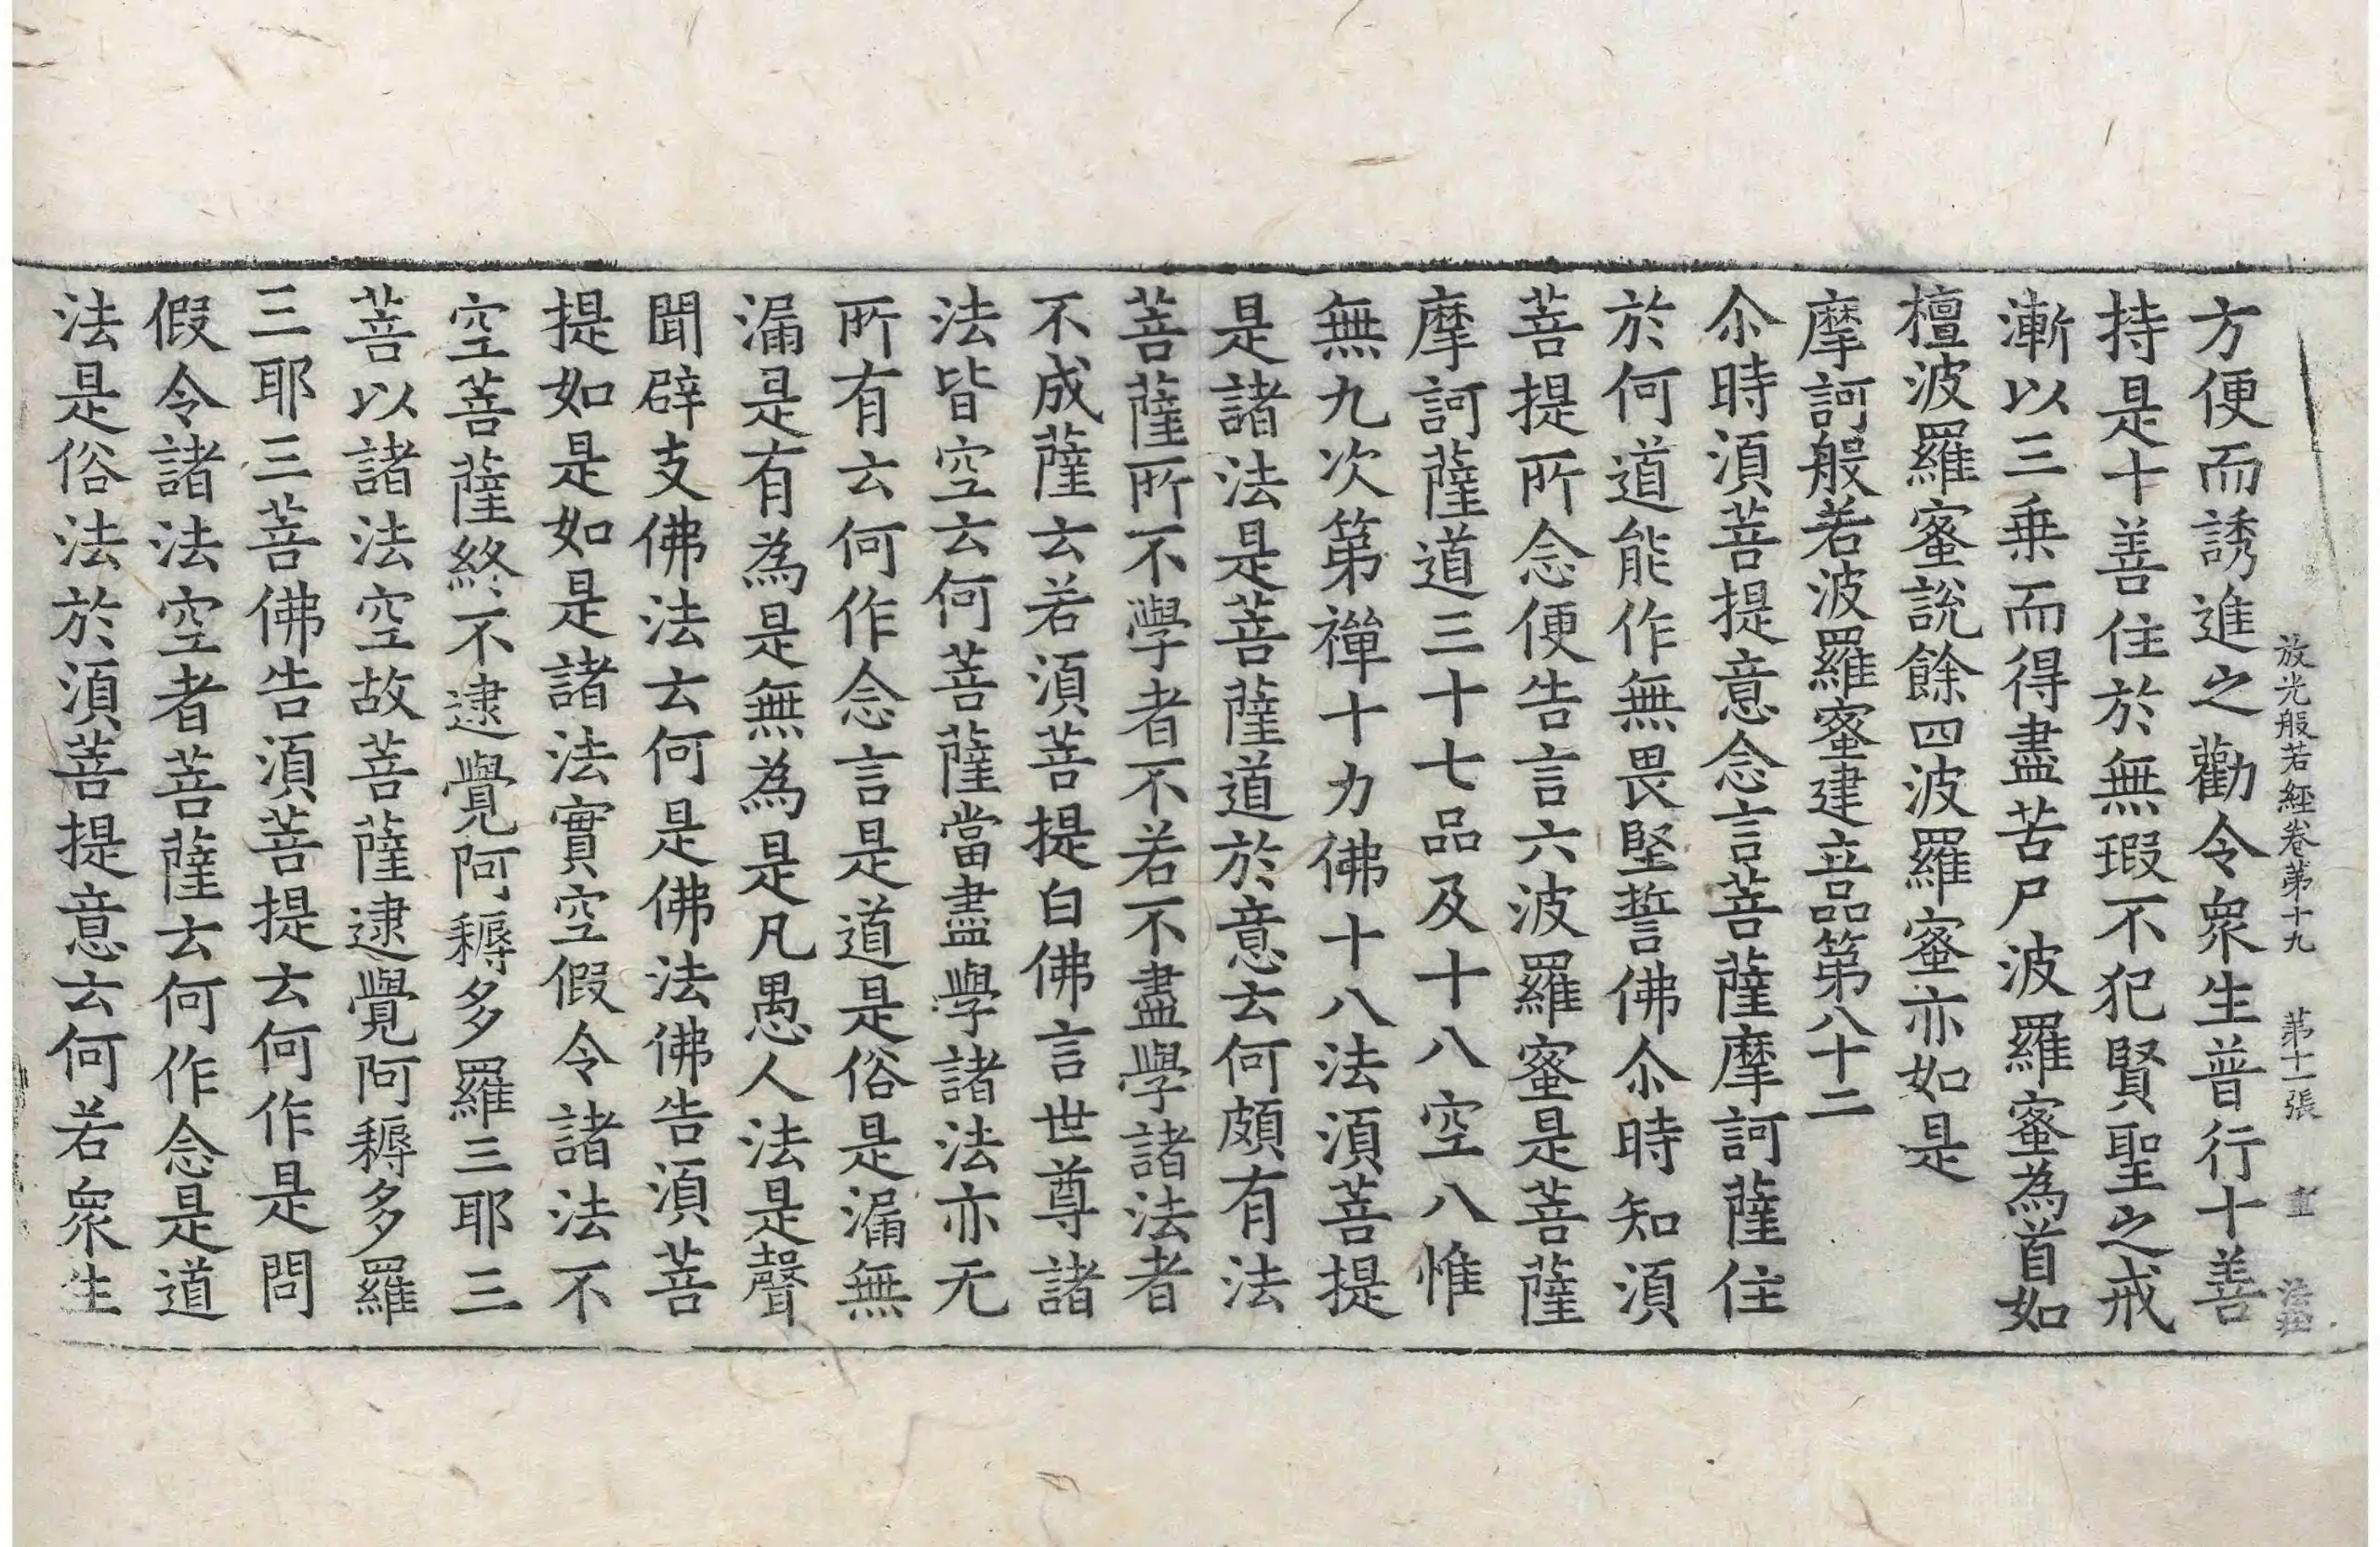 放光般若經卷第十九 第十一張
方便而誘進之勸令衆生普行十善
持是十善住於無瑕不犯賢聖之戒
漸以三乗而得盡苦尸波羅蜜為首如
檀波羅蜜說餘四波羅蜜亦如是
摩訶般若波羅蜜建立品第八十二
尒時湏菩提意念言菩薩摩訶薩住
於何道能作無畏堅誓佛尒時知湏
菩提所念便告言六波羅蜜是菩薩
摩訶薩道三十七品及十八空八惟
無九次第禪十力佛十八法湏菩提
是諸法是菩薩道於意云何頗有法
菩薩所不學者不若不盡學諸法者
不成薩云若湏菩提白佛言世尊諸
法皆空云何菩薩當盡學諸法亦无
所有云何作念言是道是俗是漏無
漏是有為是無為是凡愚人法是聲
聞辟支佛法云何是佛法佛告湏菩
提如是如是諸法實空假令諸法不
空菩薩終不逮覺阿耨多羅三耶三
菩以諸法空故菩薩逮覺阿耨多羅
三耶三菩佛告湏菩提云何作是問
假令諸法空者菩薩云何作念是道
法是俗法於湏菩提意云何若衆生